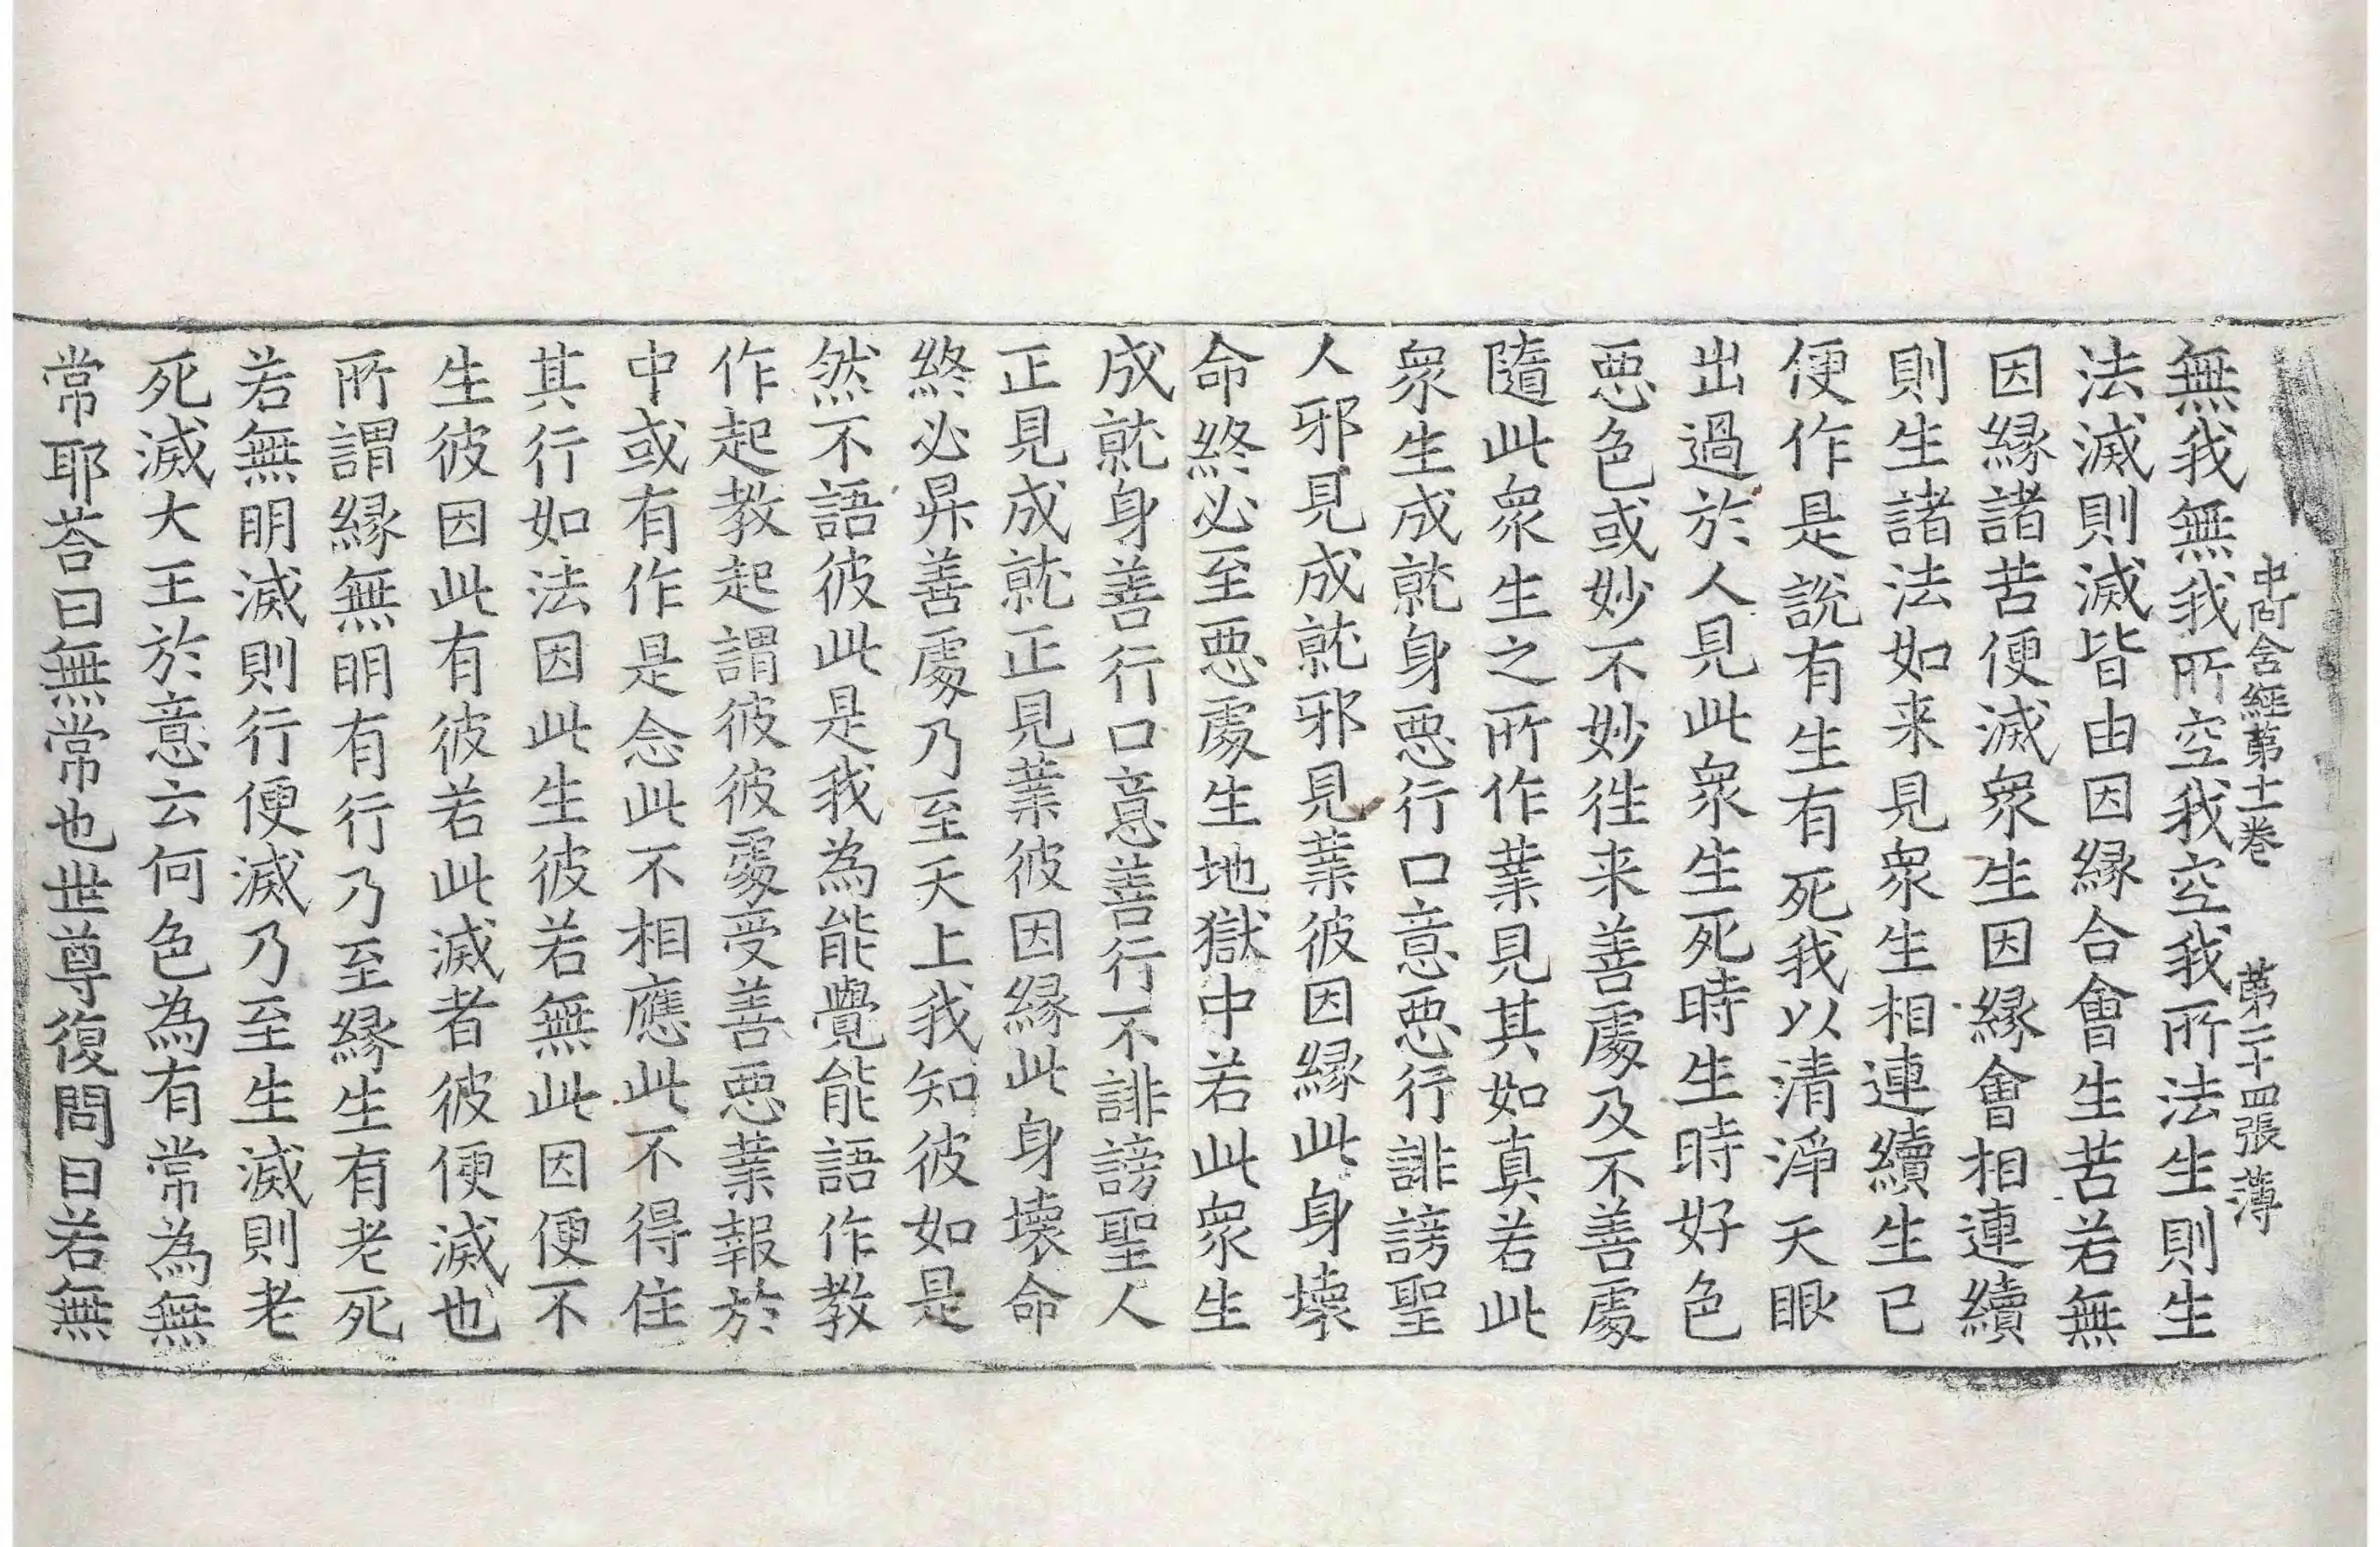 中阿含經第十一卷　第二十四張　薄
無我無我所空我空我所法生則生
法滅則滅皆由因縁合會生苦若無
因縁諸苦便滅衆生因縁會相連續
則生諸法如来見衆生相連續生已
便作是說有生有死我以清淨天眼
出過於人見此衆生死時生時好色
悪色或妙不妙徃来善處及不善處
隨此衆生之所作業見其如真若此
衆生成就身悪行口意悪行誹謗聖
人邪見成就邪見業彼因縁此身壊
命終必至悪處生地獄中若此衆生
成就身善行口意善行不誹謗聖人
正見成就正見業彼因縁此身壊命
終必昇善處乃至天上我知彼如是
然不語彼此是我為能覺能語作教
作起教起謂彼彼處受善悪業報於
中或有作是念此不相應此不得住
其行如法因此生彼若無此因便不
生彼因此有彼若此滅者彼便滅也
所謂縁無明有行乃至縁生有老死
若無明滅則行便滅乃至生滅則老
死滅大王於意云何色為有常為無
常耶荅曰無常也世尊復問曰若無